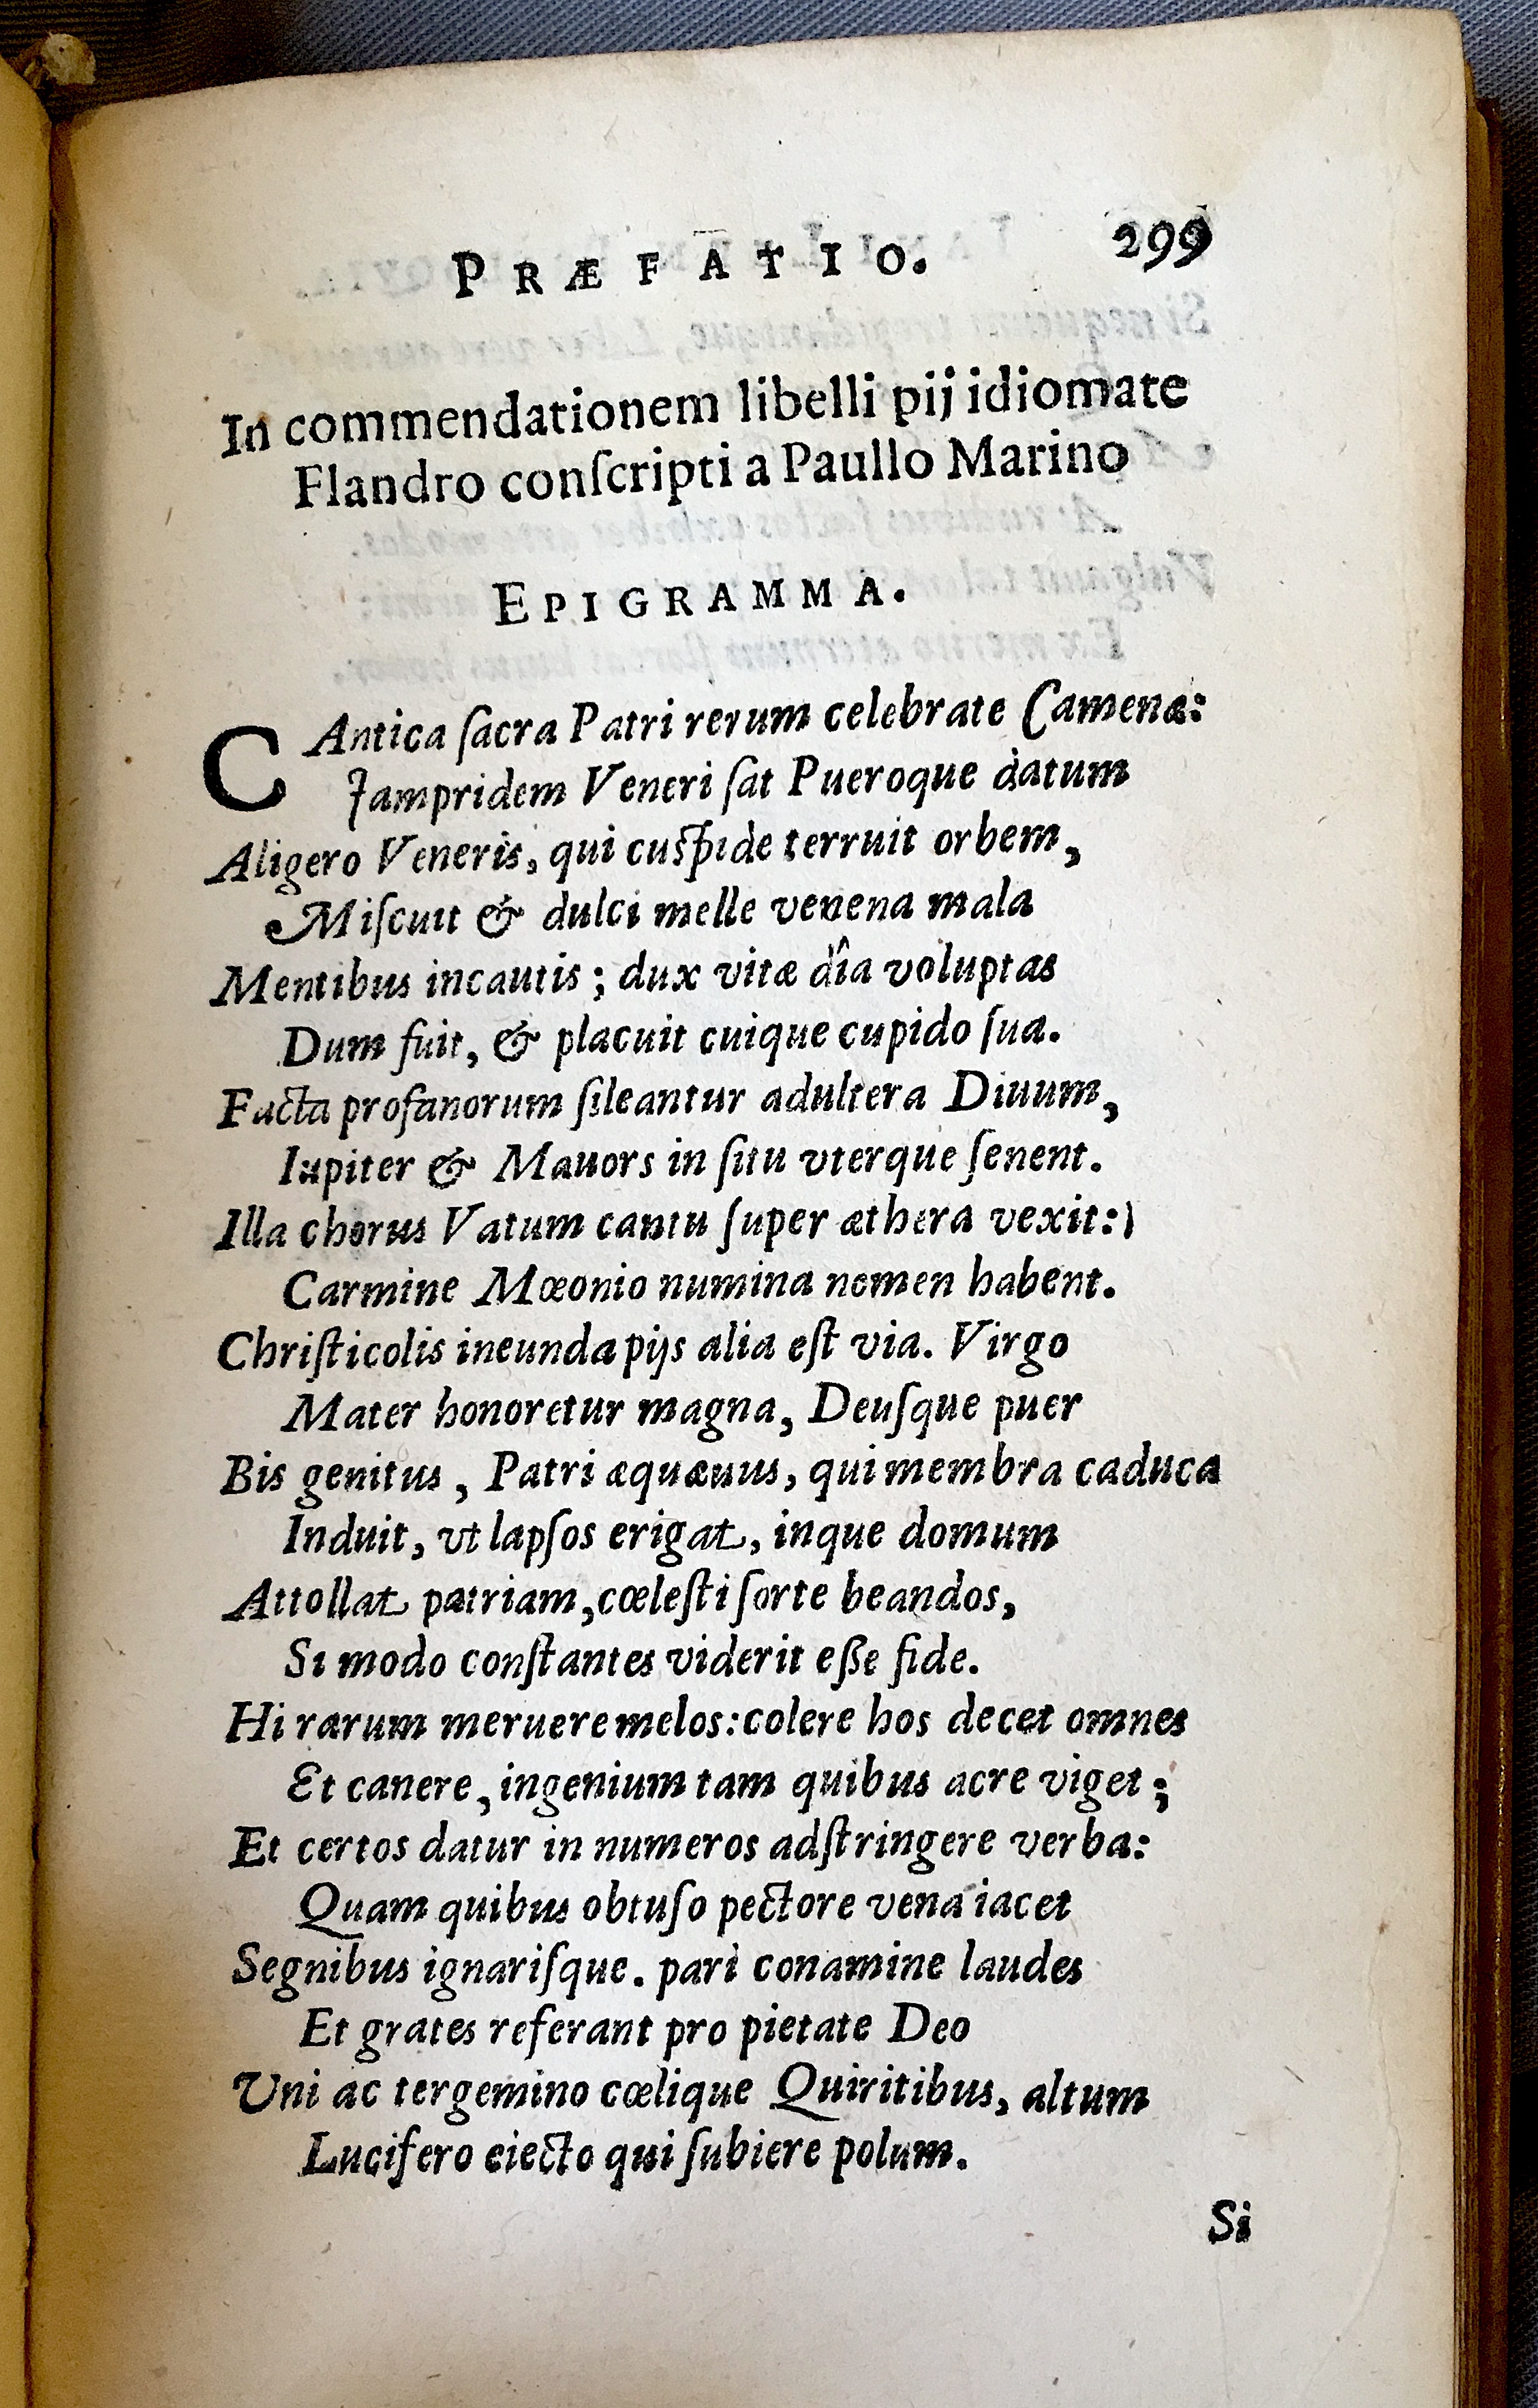 PRÆFATIO. 299
In commendationem libelli pij idiomate
Flandro conſcripti a Paullo Marino
EPIGRAMMA.
CAntica ſacra Patri rerum celebrate Camenæ:
Jampridem Veneri ſat Pueroque datum
Aligero Veneris, qui cuſpide terruit orbem,
Miſcuit & dulci melle venena mala
Mentibus incautis; dux vitæ dîa voluptas
Dum fuit, & placuit cuique cupido ſua.
Facta profanorum ſileantur adultera Diuum,
Iupiter & Mauors in ſitu vterque ſenent.
Illa chorus Vatum cantu ſuper æthera vexit:)
Carmine Mœonio numina nomen habent.
Chriſticolis ineunda pijs alia eſt via. Virgo
Mater honoretur magna, Deuſque puer
Bis genitus, Patri æquæuus, qui membra caduca
Induit, vt lapſos erigat, inque domum
Attollat patriam, cœleſti ſorte beandos,
Si modo conſtantes viderit eſſe fide.
Hi rarum meruere melos: colere hos decet omnes
Et canere, ingenium tam quibus acre viget;
Et certos datur in numeros adſtringere verba:
Quam quibus obtuſo pectore vena iacet
Segnibus ignariſque. pari conamine laudes
Et grates referant pro pietate Deo
Uni ac tergemino cœlique Quiritibus, altum
Lucifero eiecto qui ſubiere polum.
Si